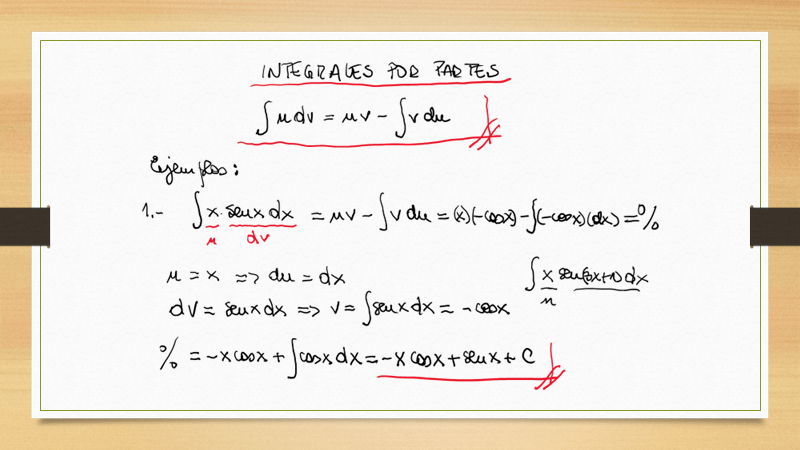 INTEGRALES POR PARTES
∫ u dv = uv - ∫ v du
Ejemplos:
1.- ∫ x · senx dx = uv - ∫ v du = (x)(-cosx) - ∫(-cosx)(dx) = %
u dv
u = x => du = dx
∫ x sen dx
u
dv = senx dx => v = ∫ senx dx = -cosx
% = -x cosx + ∫ cosx dx = -x cosx + senx + C